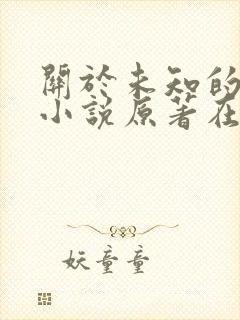 關於未知的
小說原著在
妖童童